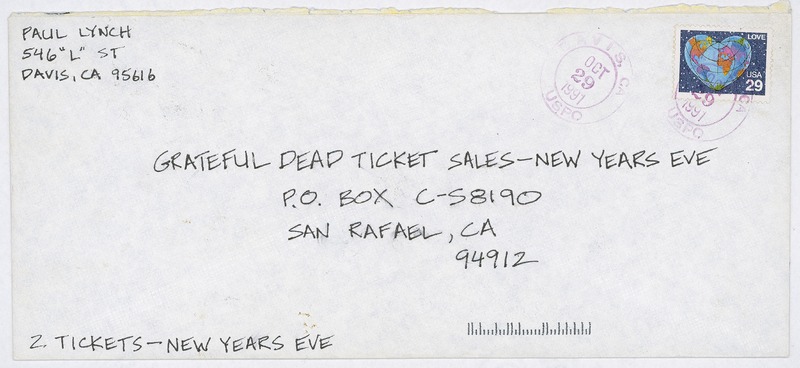 PAUL LYNCH
546 "L" ST
DAVIS, CA 95616
DAVIS, CA
OCT
29
1991
USPO
LOVE
USA
29
29
1991
USPO
CA
GRATEFUL DEAD TICKET SALES-NEW YEARS EVE
P.O. BOX C-S8190
SAN RAFAEL, CA
94912
2 TICKETS-NEW YEARS EVE